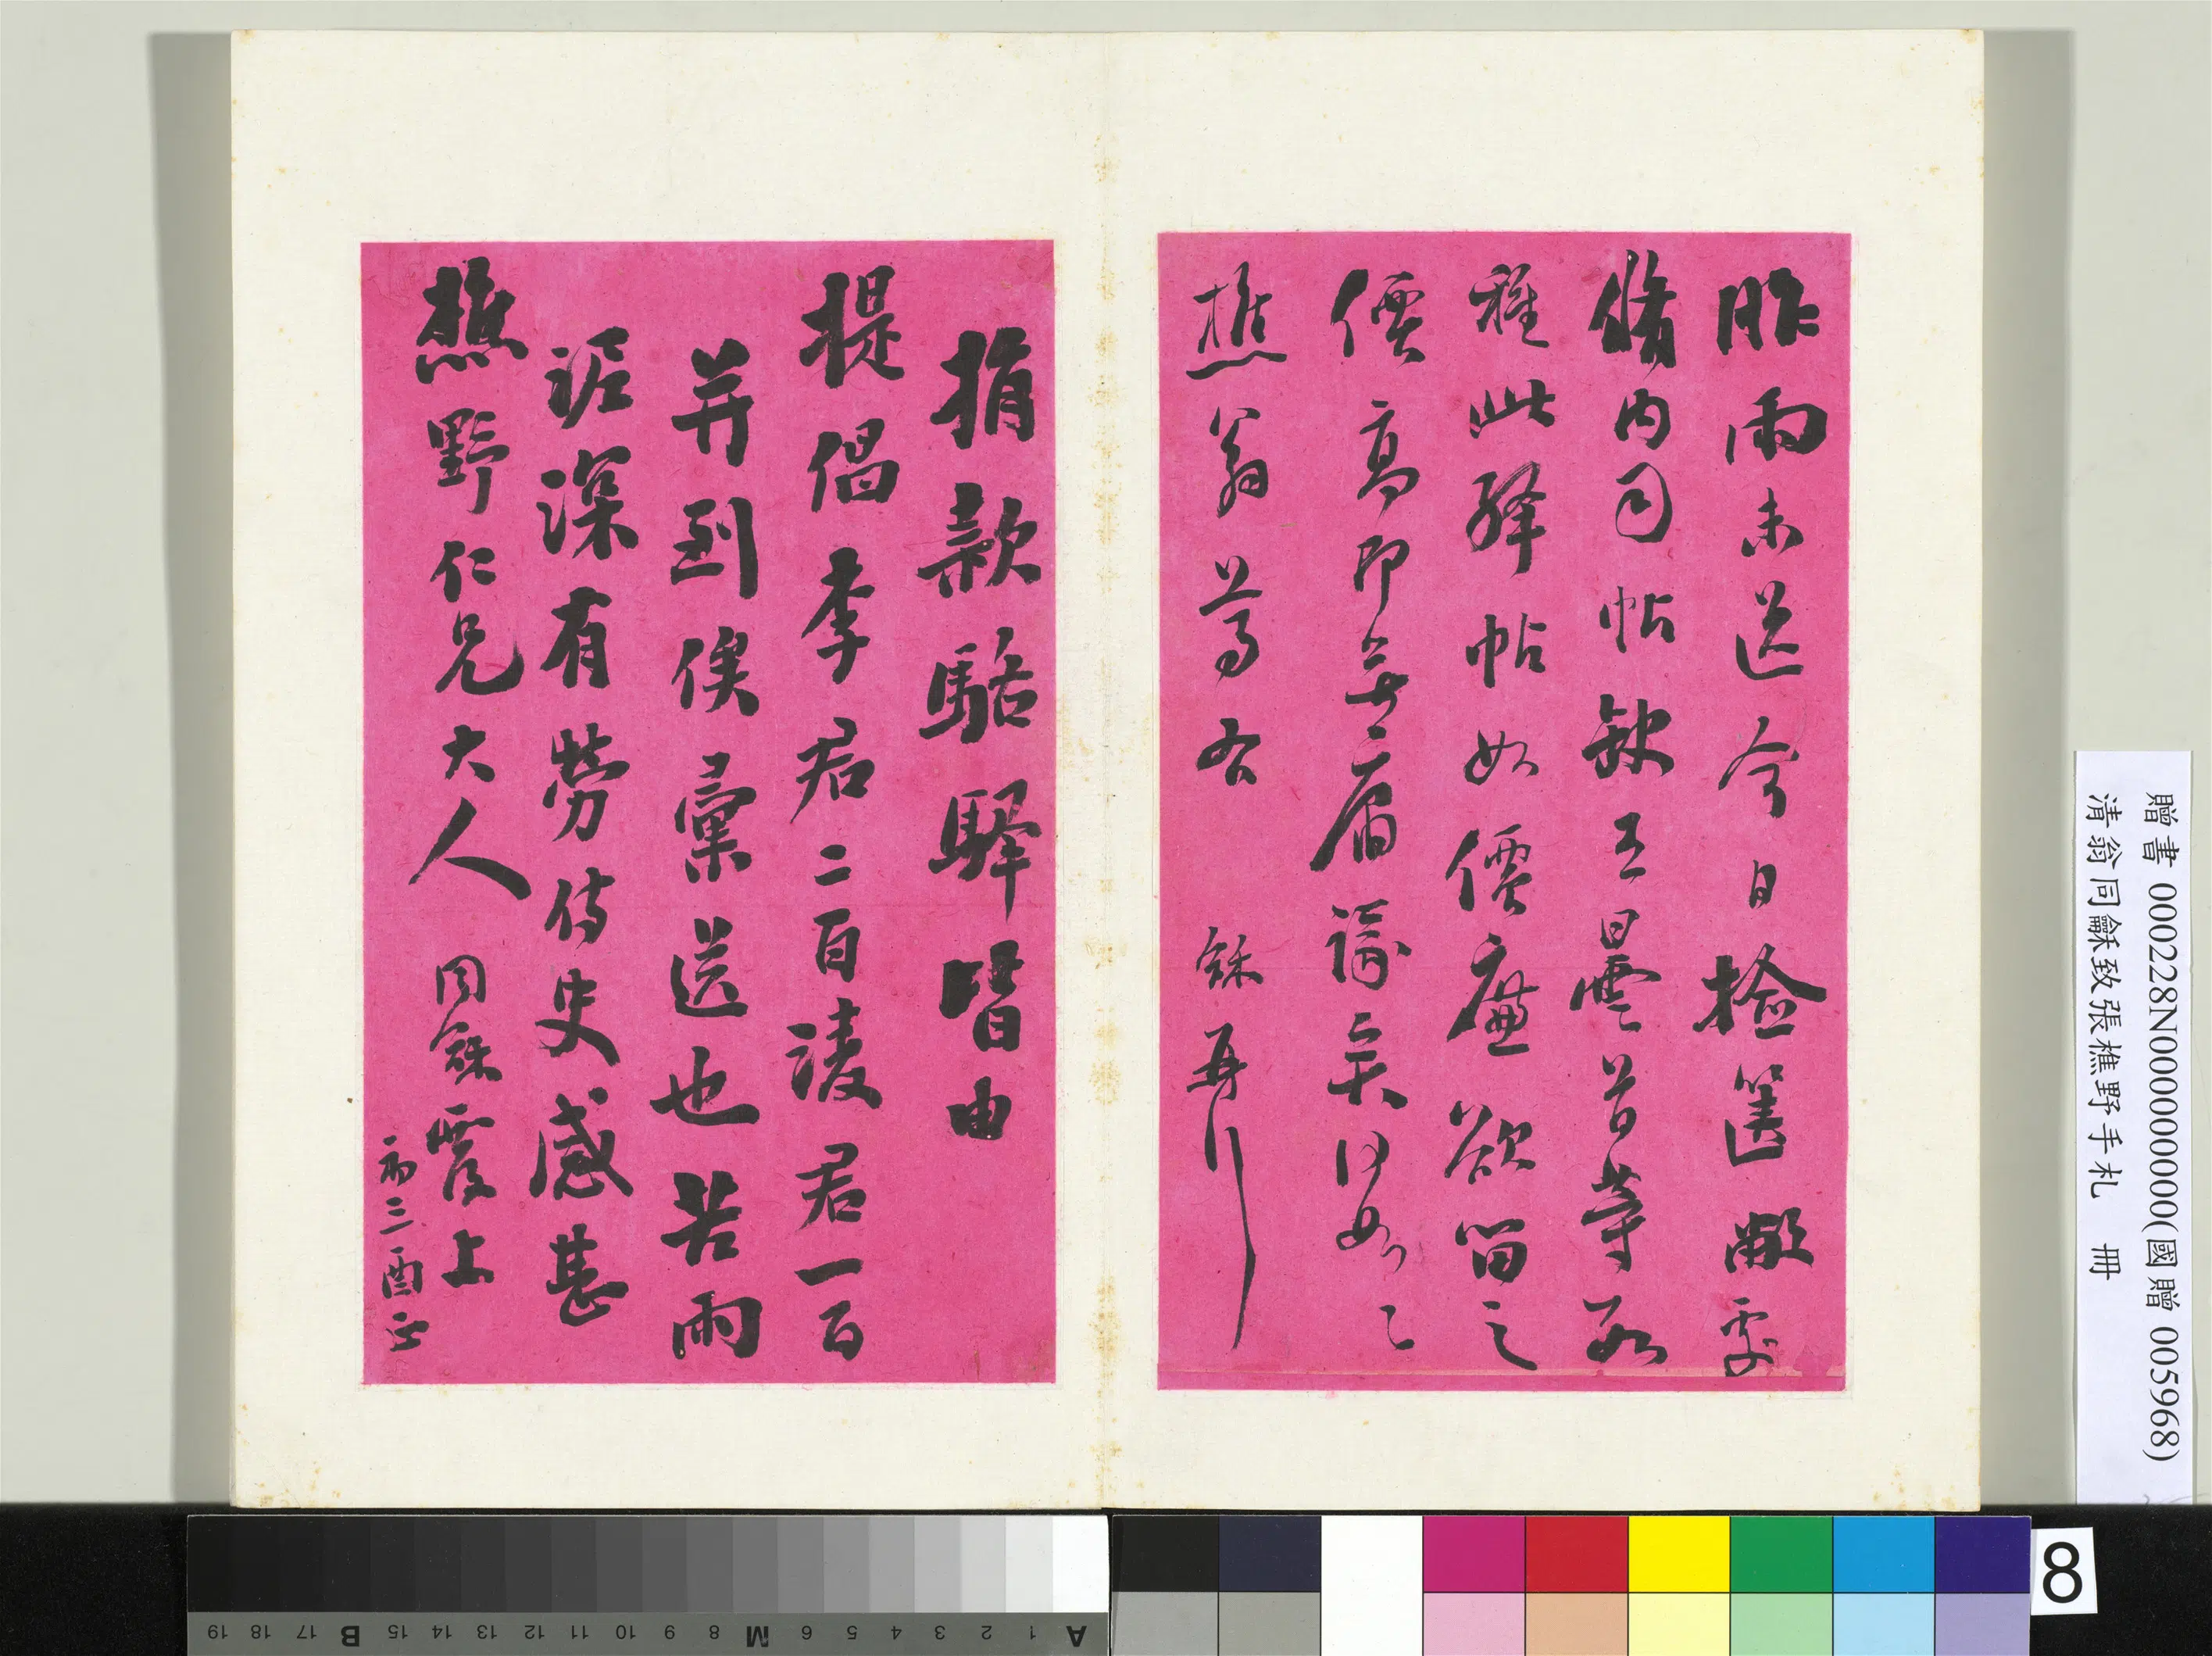 昨雨未送今日撿篋敝處
脩內司帖缺五日雲昔等取
雜此絳帖如值廉欲留之
價高即無庸議矣何如〻
樵翁尊右
龢再行
捐款駱驛皆由
提倡李君二百凌君一百
并到俟彙送也苦雨
泥深有勞侍史感甚
樵野仁兄大人
同龢覆上
初三酉正
贈書 000228N000000000(國贈 005968)
清翁同龢致張樵野手札 冊
8
A 1 2 3 4 5 6 M 8 9 10 11 12 13 14 15 B 17 18 19